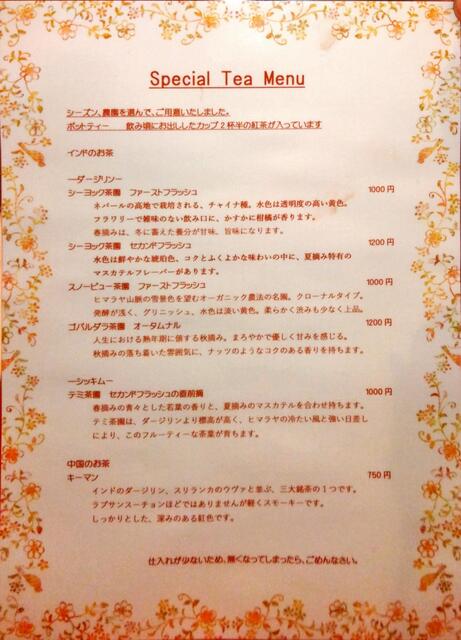 Special Tea Menu
シーズン、農園を選んで、ご用意いたしました。
ポットティー　飲み頃にお出ししたカップ2杯半の紅茶が入っています
インドのお茶
ーダージリンー
シーヨック茶園　ファーストフラッシュ 1000円
ネパールの高地で栽培される、チャイナ種。水色は透明度の高い黄色。
フラワリーで雑味のない飲み口に、かすかに柑橘が香ります。
春摘みは、冬に蓄えた養分が甘味、旨味になります。
シーヨック茶園　セカンドフラッシュ 1200円
水色は鮮やかな琥珀色、コクとふくよかな味わいの中に、夏摘み特有の
マスカテルフレーバーがあります。
スノービュー茶園　ファーストフラッシュ 1000円
ヒマラヤ山脈の雪景色を望むオーガニック農法の名園。クローナルタイプ。
発酵が浅く、グリニッシュ、水色は淡い黄色。柔らかく渋みも少なく上品。
ゴパルダラ茶園　オータムナル 1200円
人生における熟年期に値する秋摘み。まろやかで優しく甘みを感じる。
秋摘みの落ち着いた雰囲気に、ナッツのようなコクのある香りを持ちます。
ーシッキムー
テミ茶園　セカンドフラッシュの直前摘 1000円
春摘みの青々とした若葉の香りと、夏摘みのマスカテルを合わせ持ちます。
テミ茶園は、ダージリンより標高が高く、ヒマラヤの冷たい風と強い日差し
により、このフルーティーな茶葉が育ちます。
中国のお茶
キーマン 750円
インドのダージリン、スリランカのウヴァと並ぶ、三大銘茶の1つです。
ラプサンスーチョンほどではありませんが軽くスモーキーです。
しっかりとした、深みのある紅色です。
仕入れが少ないため、無くなってしまったら、ごめんなさい。